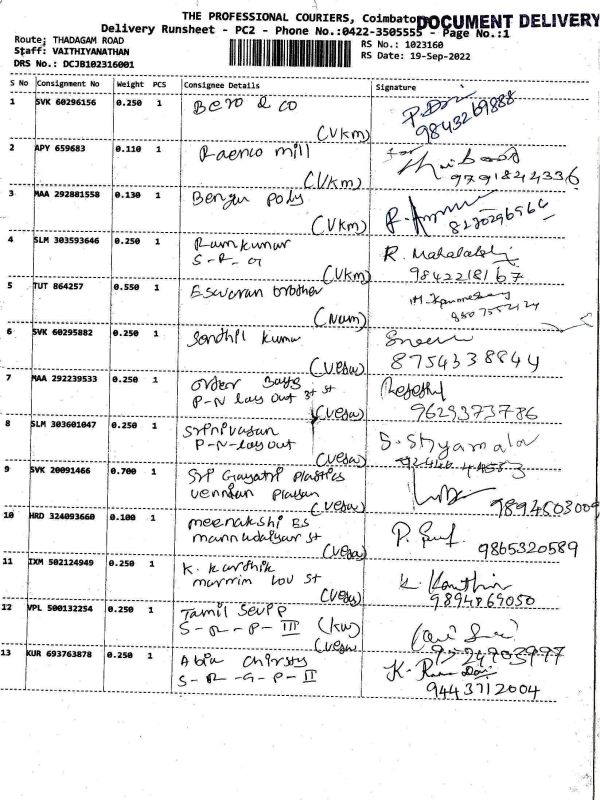 THE PROFESSIONAL COURIERS, Coimbato
DOCUMENT DELIVERY
Delivery Runsheet - PC2 - Phone No.:0422-3505555 - Page No.:1
Route: THADAGAM ROAD
RS No.: 1023160
Staff: VAITHIYANATHAN
RS Date: 19-Sep-2022
DRS No.: DCJB102316001
S No Consignment No Weight PCS Consignee Details Signature
1 SVK 60296156 0.250 1 Bero & co
9843269888
(Vkm)
2 APY 659683 0.110 1 Raenco mill
for
9791844336
(Vkm)
3 MAA 292881558 0.130 1 Bengu poly
(Vkm)
4 SLM 303593646 0.250 1 Ramkumar
R. Mahalakshmi
S-R-G
(Vkm) 9842218167
5 TUT 864257 0.550 1 Eswaran brother
(Num)
6 SVK 60295882 0.250 1 Senthil kumar
(Vesu) 8754338844
7 MAA 292239533 0.250 1 order Bags
P-N lay out 3rd st
(Vesu) 9629373786
8 SLM 303601047 0.250 1 Srinivasan
P-N-lay out
S. Shyamala
(Vesu)
9 SVK 20091466 0.700 1 Sri Gayatri Plastics
(Vesu) 9894603009
10 HRD 324093660 0.100 1 meenakshi ES
P.
mannudaiyar st
9865320589
(Vesu)
11 IXM 502124949 0.250 1 K. Karthik
K. Karthik
st
(Vesu) 9894869050
12 VPL 500132254 0.250 1 Tamil Selvi P
S-R-P-III (kw)
(Vesu)
13 KUR 693763878 0.250 1 Abia Chirsty
K.
S-R-G-P-II
9443712004